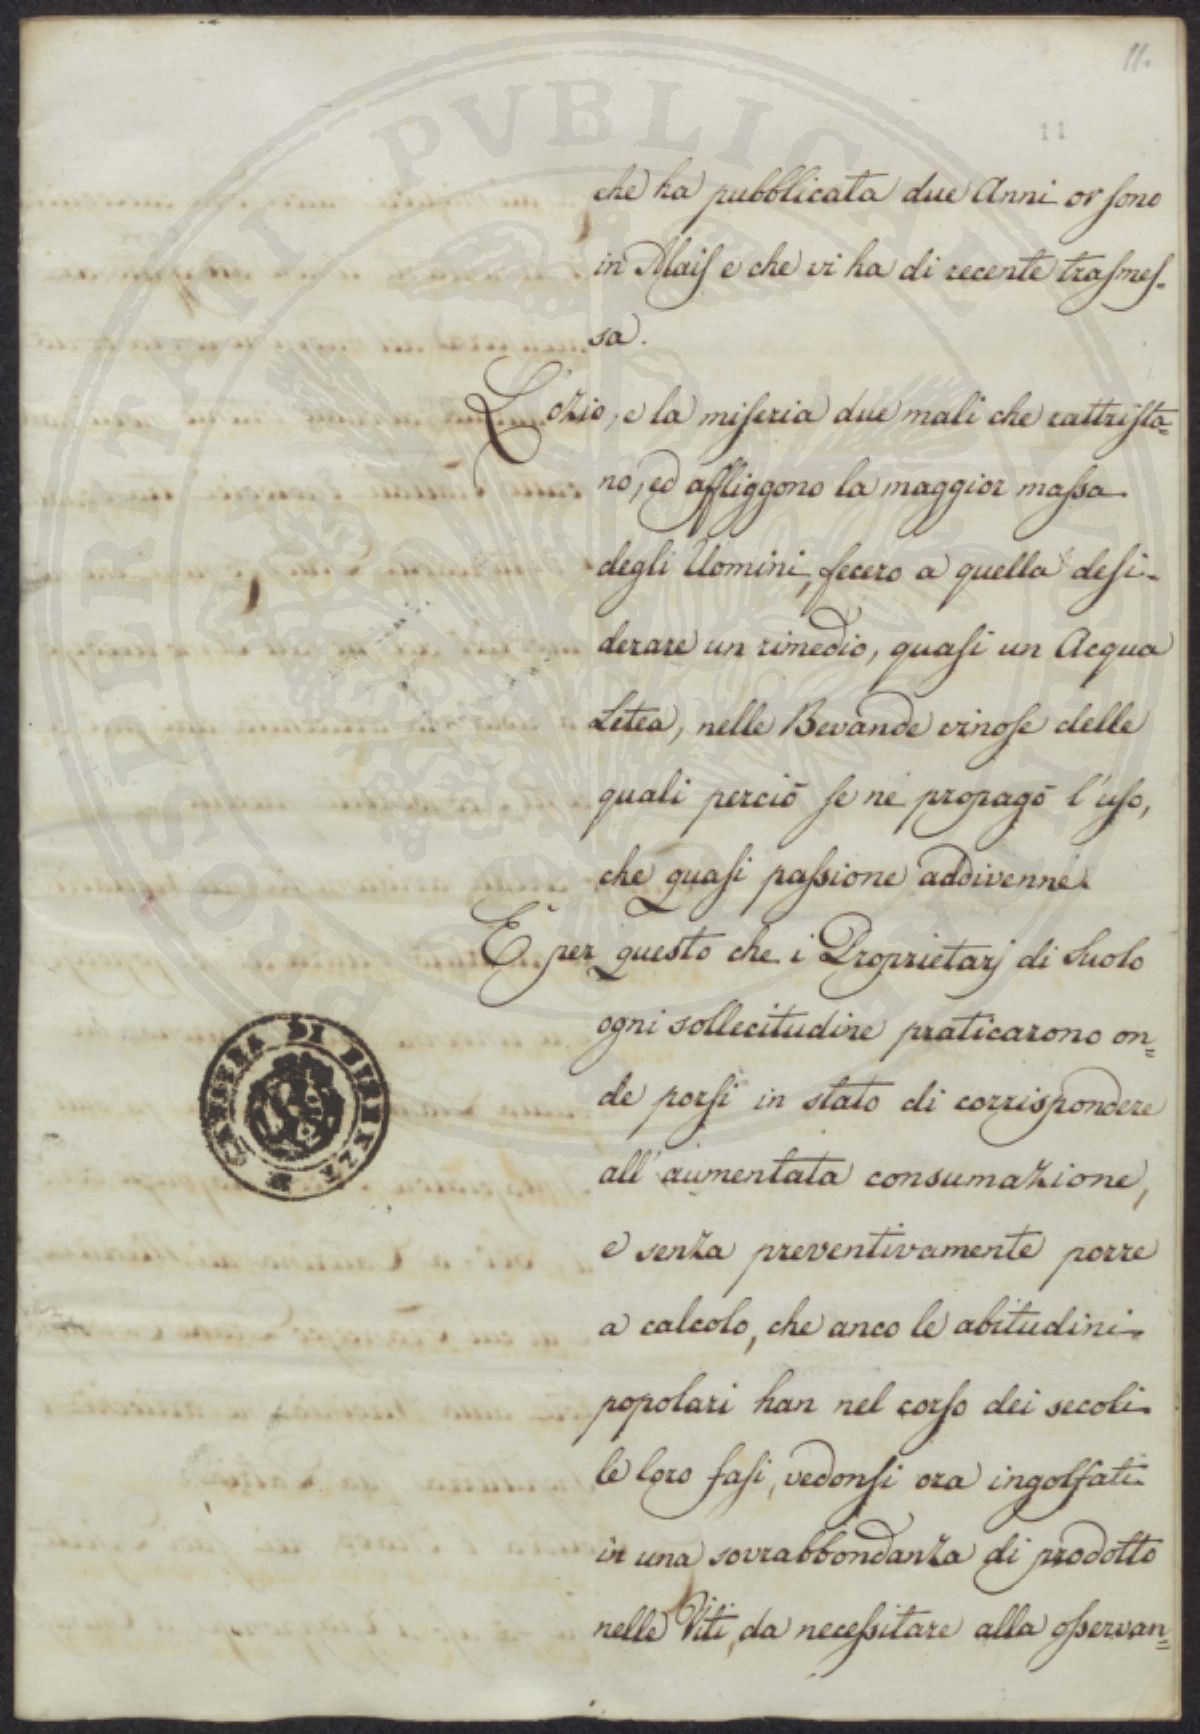 11.
11
che ha pubblicata due Anni or sono
in Mais e che vi ha di recente trasmes-
sa.
L'ozio, e la miseria due mali che rattrista=
no, ed affliggono la maggior massa
degli Uomini, fecero a quella desi-
derare un rimedio, quasi un Acqua
Letea, nelle Bevande vinose delle
quali perciò se ne propagò l'uso,
che quasi passione addivenne.
E' per questo che i Proprietarj di Suolo
ogni sollecitudine praticarono on=
de porsi in stato di corrispondere
all'aumentata consumazione,
e senza preventivamente porre
a calcolo, che anco le abitudini
popolari han nel corso dei secoli
le loro fasi, vedonsi ora ingolfati
in una sovrabbondanza di prodotto
nelle Viti, da necessitare alla osservan=
CAMERA DI FIRENZE
PROSPERITATI PUBLICAE